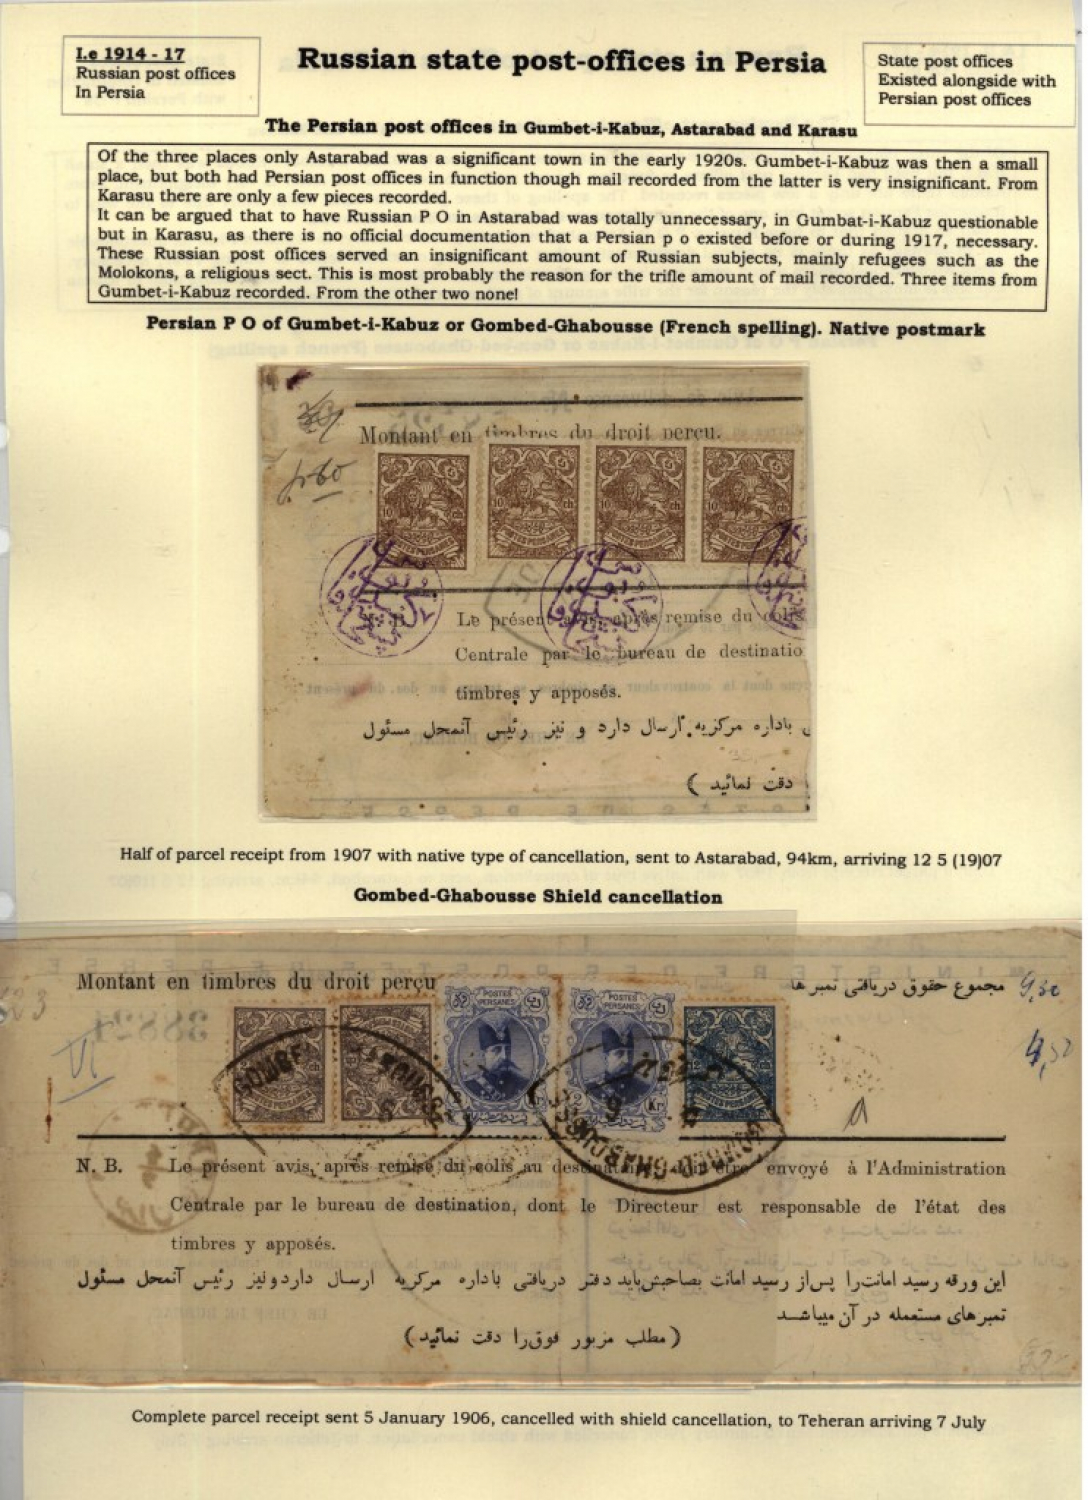 I.e 1914 - 17
Russian post offices
In Persia
Russian state post-offices in Persia
State post offices
Existed alongside with
Persian post offices
The Persian post offices in Gumbet-i-Kabuz, Astarabad and Karasu
Of the three places only Astarabad was a significant town in the early 1920s. Gumbet-i-Kabuz was then a small
place, but both had Persian post offices in function though mail recorded from the latter is very insignificant. From
Karasu there are only a few pieces recorded.
It can be argued that to have Russian P O in Astarabad was totally unnecessary, in Gumbat-i-Kabuz questionable
but in Karasu, as there is no official documentation that a Persian p o existed before or during 1917, necessary.
These Russian post offices served an insignificant amount of Russian subjects, mainly refugees such as the
Molokons, a religious sect. This is most probably the reason for the trifle amount of mail recorded. Three items from
Gumbet-i-Kabuz recorded. From the other two none!
Persian P O of Gumbet-i-Kabuz or Gombed-Ghabousse (French spelling). Native postmark
Montant en timbres du droit perçu.
10 ch
10 ch
10 ch
10 ch
Le présent avis, après remise du colis
Centrale par le bureau de destinatio
timbres y apposés.
باداره مرکزیه ارسال دارد و نیز رئیس آنمحل مسئول
دقت نمائید )
Half of parcel receipt from 1907 with native type of cancellation, sent to Astarabad, 94km, arriving 12 5 (19)07
Gombed-Ghabousse Shield cancellation
Montant en timbres du droit perçu
مجموع حقوق دریافتی تمبر ها
9,50
4,50
VI
38824
POSTES PERSANES
POSTES PERSANES
2 Kr
GOMBED-GHABOUSSE
N. B. Le présent avis, après remise du colis au destinataire doit être envoyé à l'Administration
Centrale par le bureau de destination, dont le Directeur est responsable de l'état des
timbres y apposés.
این ورقه رسید امانت‌را پس‌از رسید امانت بصاحبش‌باید دفتر دریافتی باداره مرکزیه ارسال داردونیز رئیس آنمحل مسئول
تمبرهای مستعمله در آن میباشد
(مطلب مزبور فوق‌را دقت نمائید)
Complete parcel receipt sent 5 January 1906, cancelled with shield cancellation, to Teheran arriving 7 July